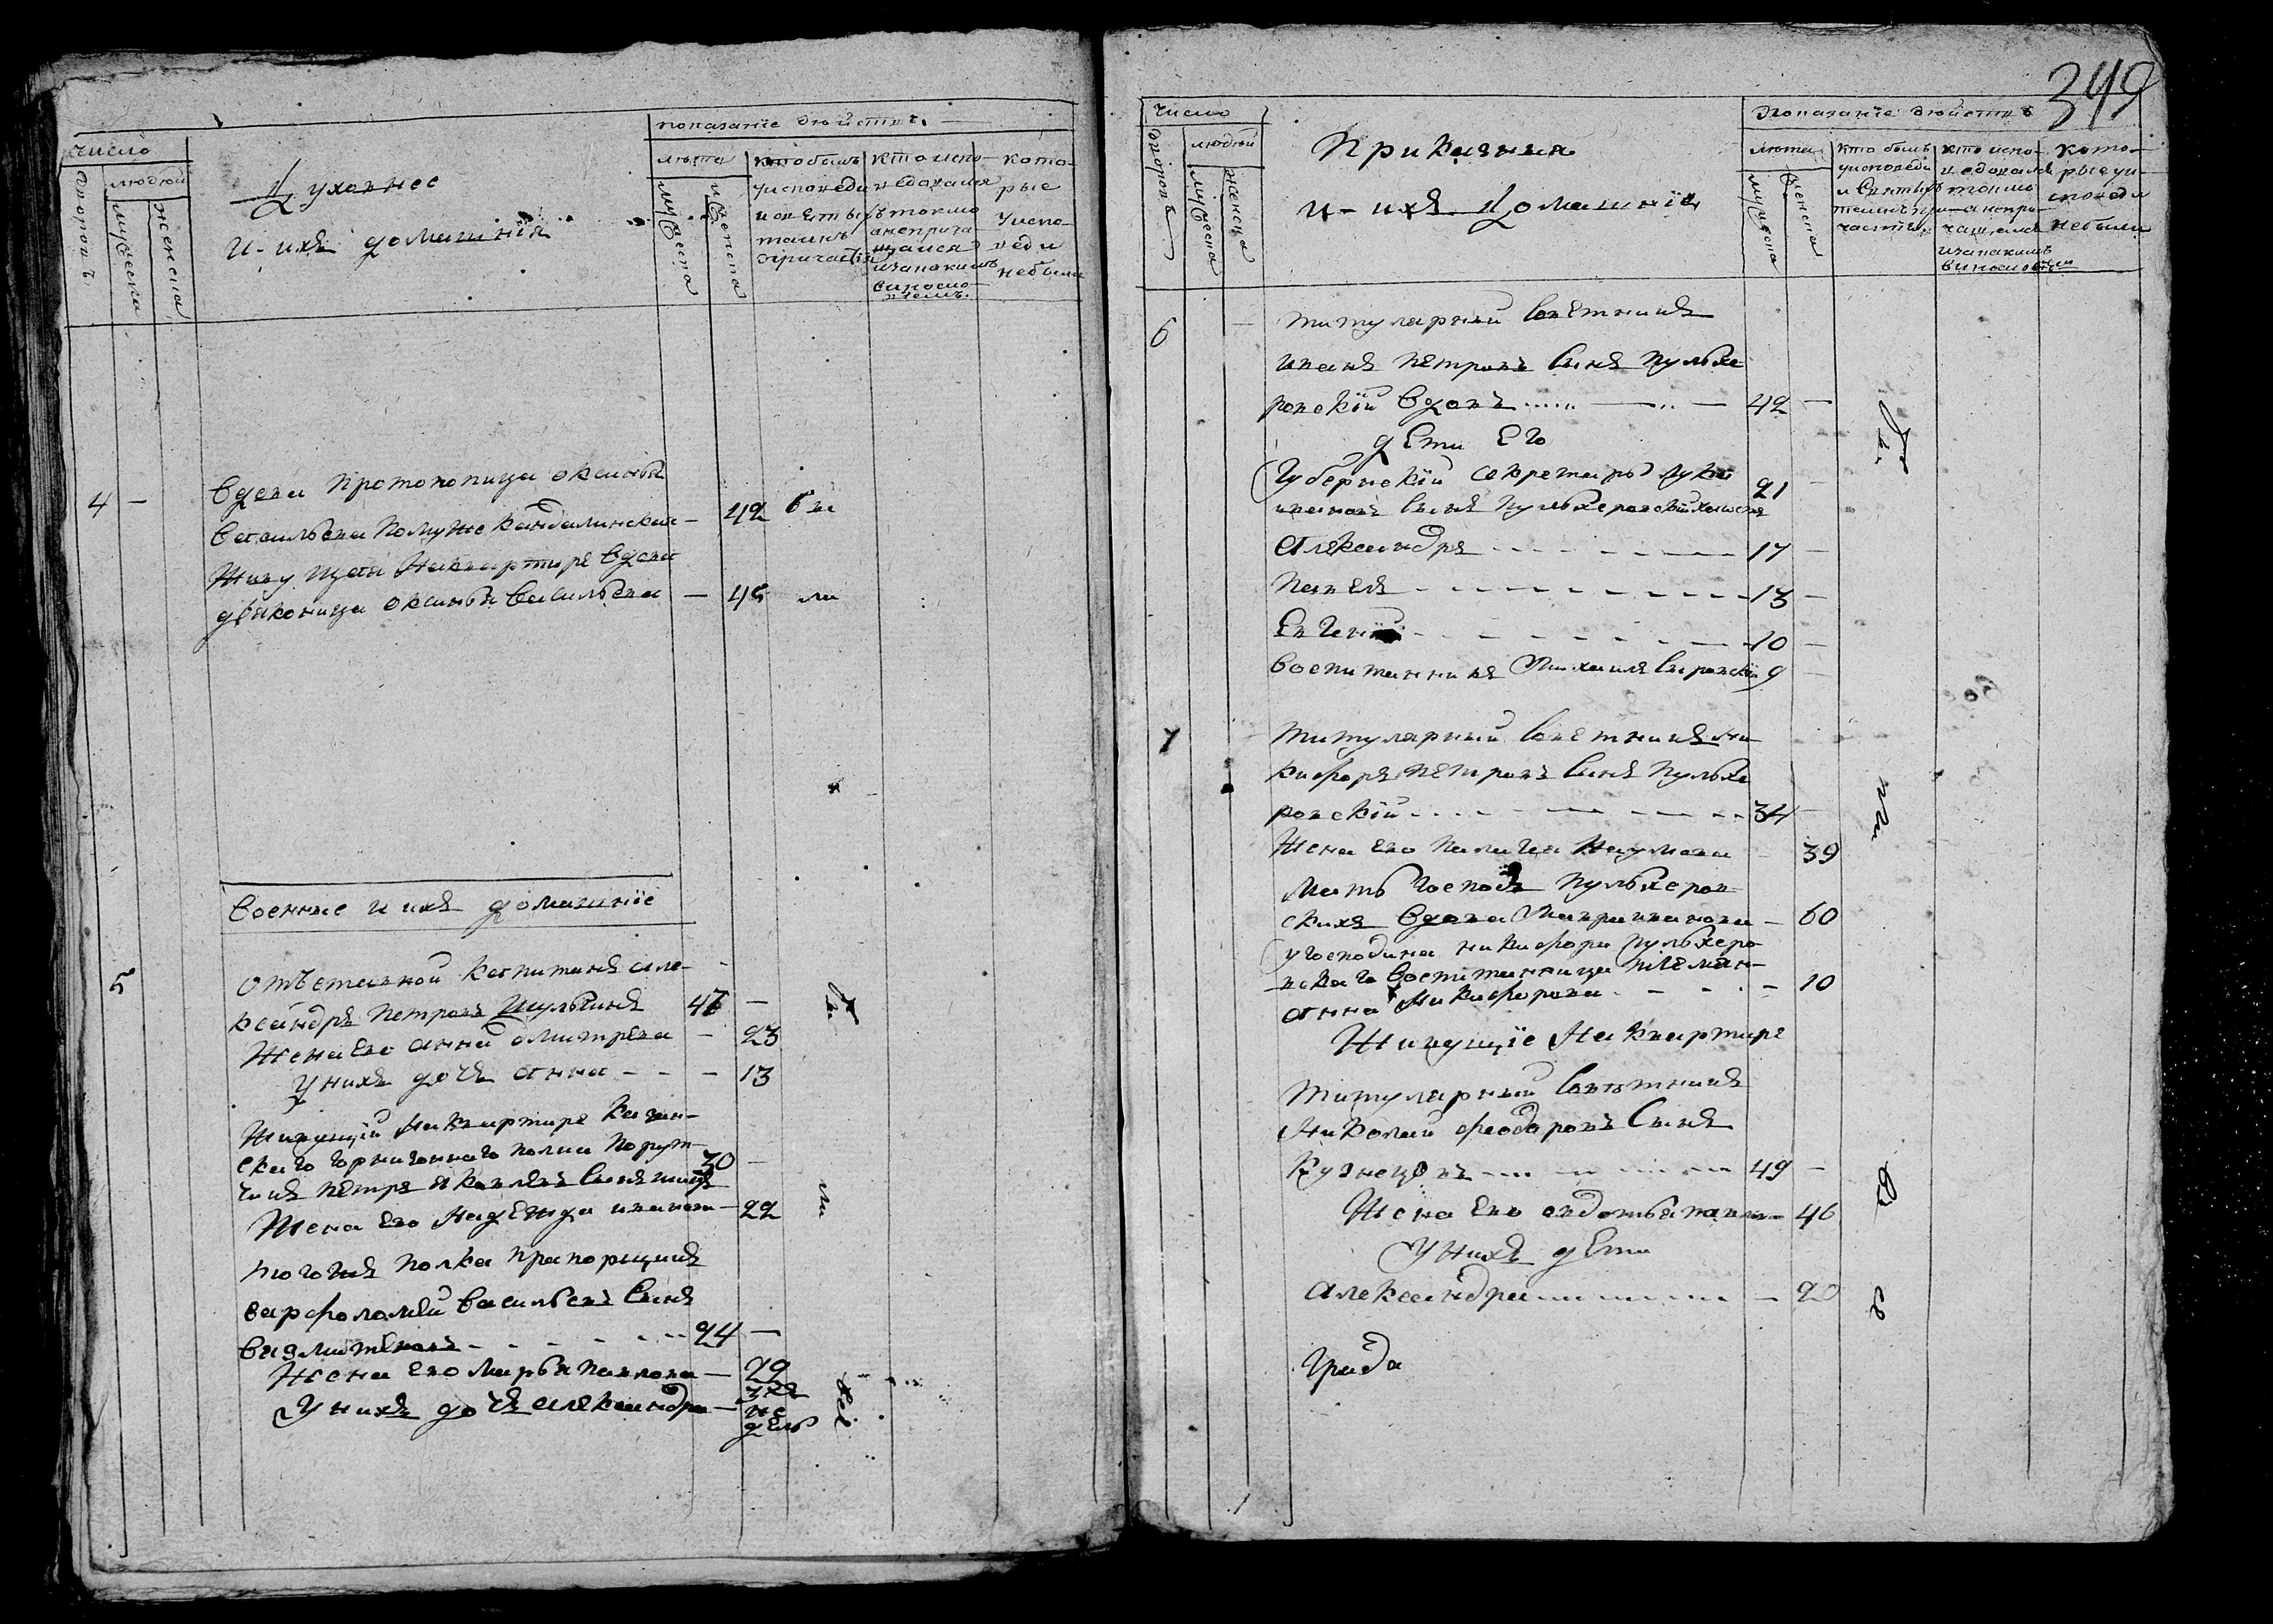 число
дворовъ
людей
мужеска
женска
Духовнее
и ихъ домашнiя
показанïе действъ
лѣта
мужеска
женска
кто былъ
у исповеди
и с~вятыхъ
таинъ
причастія
кто испо-
ведался
токмо
а неприча-
щался
и за какимъ
винosло-
віемъ
кото-
рые
у испо-
веди
небыли
4 —
Вдова протопопица оксинья
васильева по муже Кандалинская — 42 бы
Живущая Наквартире вдова
дьяконица оксинья васильева — 45 ли
военные и ихъ домашнïе
5
отъставной капитанъ але-
ксандръ петровъ Шульгинъ 47 —
Жена Его анна дмитрева — 23
У нихъ дочь анна - - - 13
Живущïй Наквартире Казан-
скаго гарнизоннаго полка Порут-
чикъ петръ яковлевъ сынъ 30 —
Жена Его Надежда иванова — 22
тогожъ полка прапорщикъ
варфоломей васильевъ сынъ
24 —
Жена Его марья павлова — 29
У нихъ дочь александра — 3хъ
не
дель
всѣ
349
число
дворовъ
людей
мужеска
женска
Приказныя
и ихъ Домашнïя
Показанïе действъ
лѣта
мужеска
женска
кто былъ
у исповеди
и Святыхъ
таинъ при-
частія
кто испо-
ведался
токмо
а непри-
чащался
и за какимъ
винословіемъ
кото-
рые у и-
споведи
небыли
6 —
титулярный Советникъ
иванъ петровъ Сынъ пульхе-
ровскïй вдовъ — 42 —
дети Его
Губернскïй секретарь лука
ивановъ Сынъ пульхеровскïй холостъ 21 —
Александръ - - - 17 —
Павелъ - - - 13 —
Евгенïй - - - 10 —
воспитанникъ Михаила 9 —
7
титулярный Советникъ ни-
кифоръ петровъ Сынъ пульхе
ровскïй - - - 34 —
Жена Его палагея Наумова — 39
мать господъ пульхеров-
скихъ вдова Мавра иванова — 60
у господина никифора пульхеро-
вскаго воспитанница племян-
анна Никифорова - - - 10
Живущïе На Квартире
титулярный Советникъ
Николай феодоровъ Сынъ
Кузнецовъ - - - 49 —
Жена Его авдотья — 46
У нихъ дети
Александра - - - 20
Града